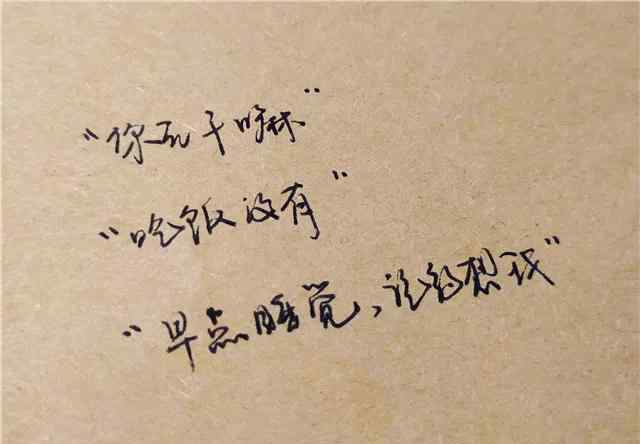 “你在干嘛”
“吃饭没有”
“早点睡觉，记得想我”